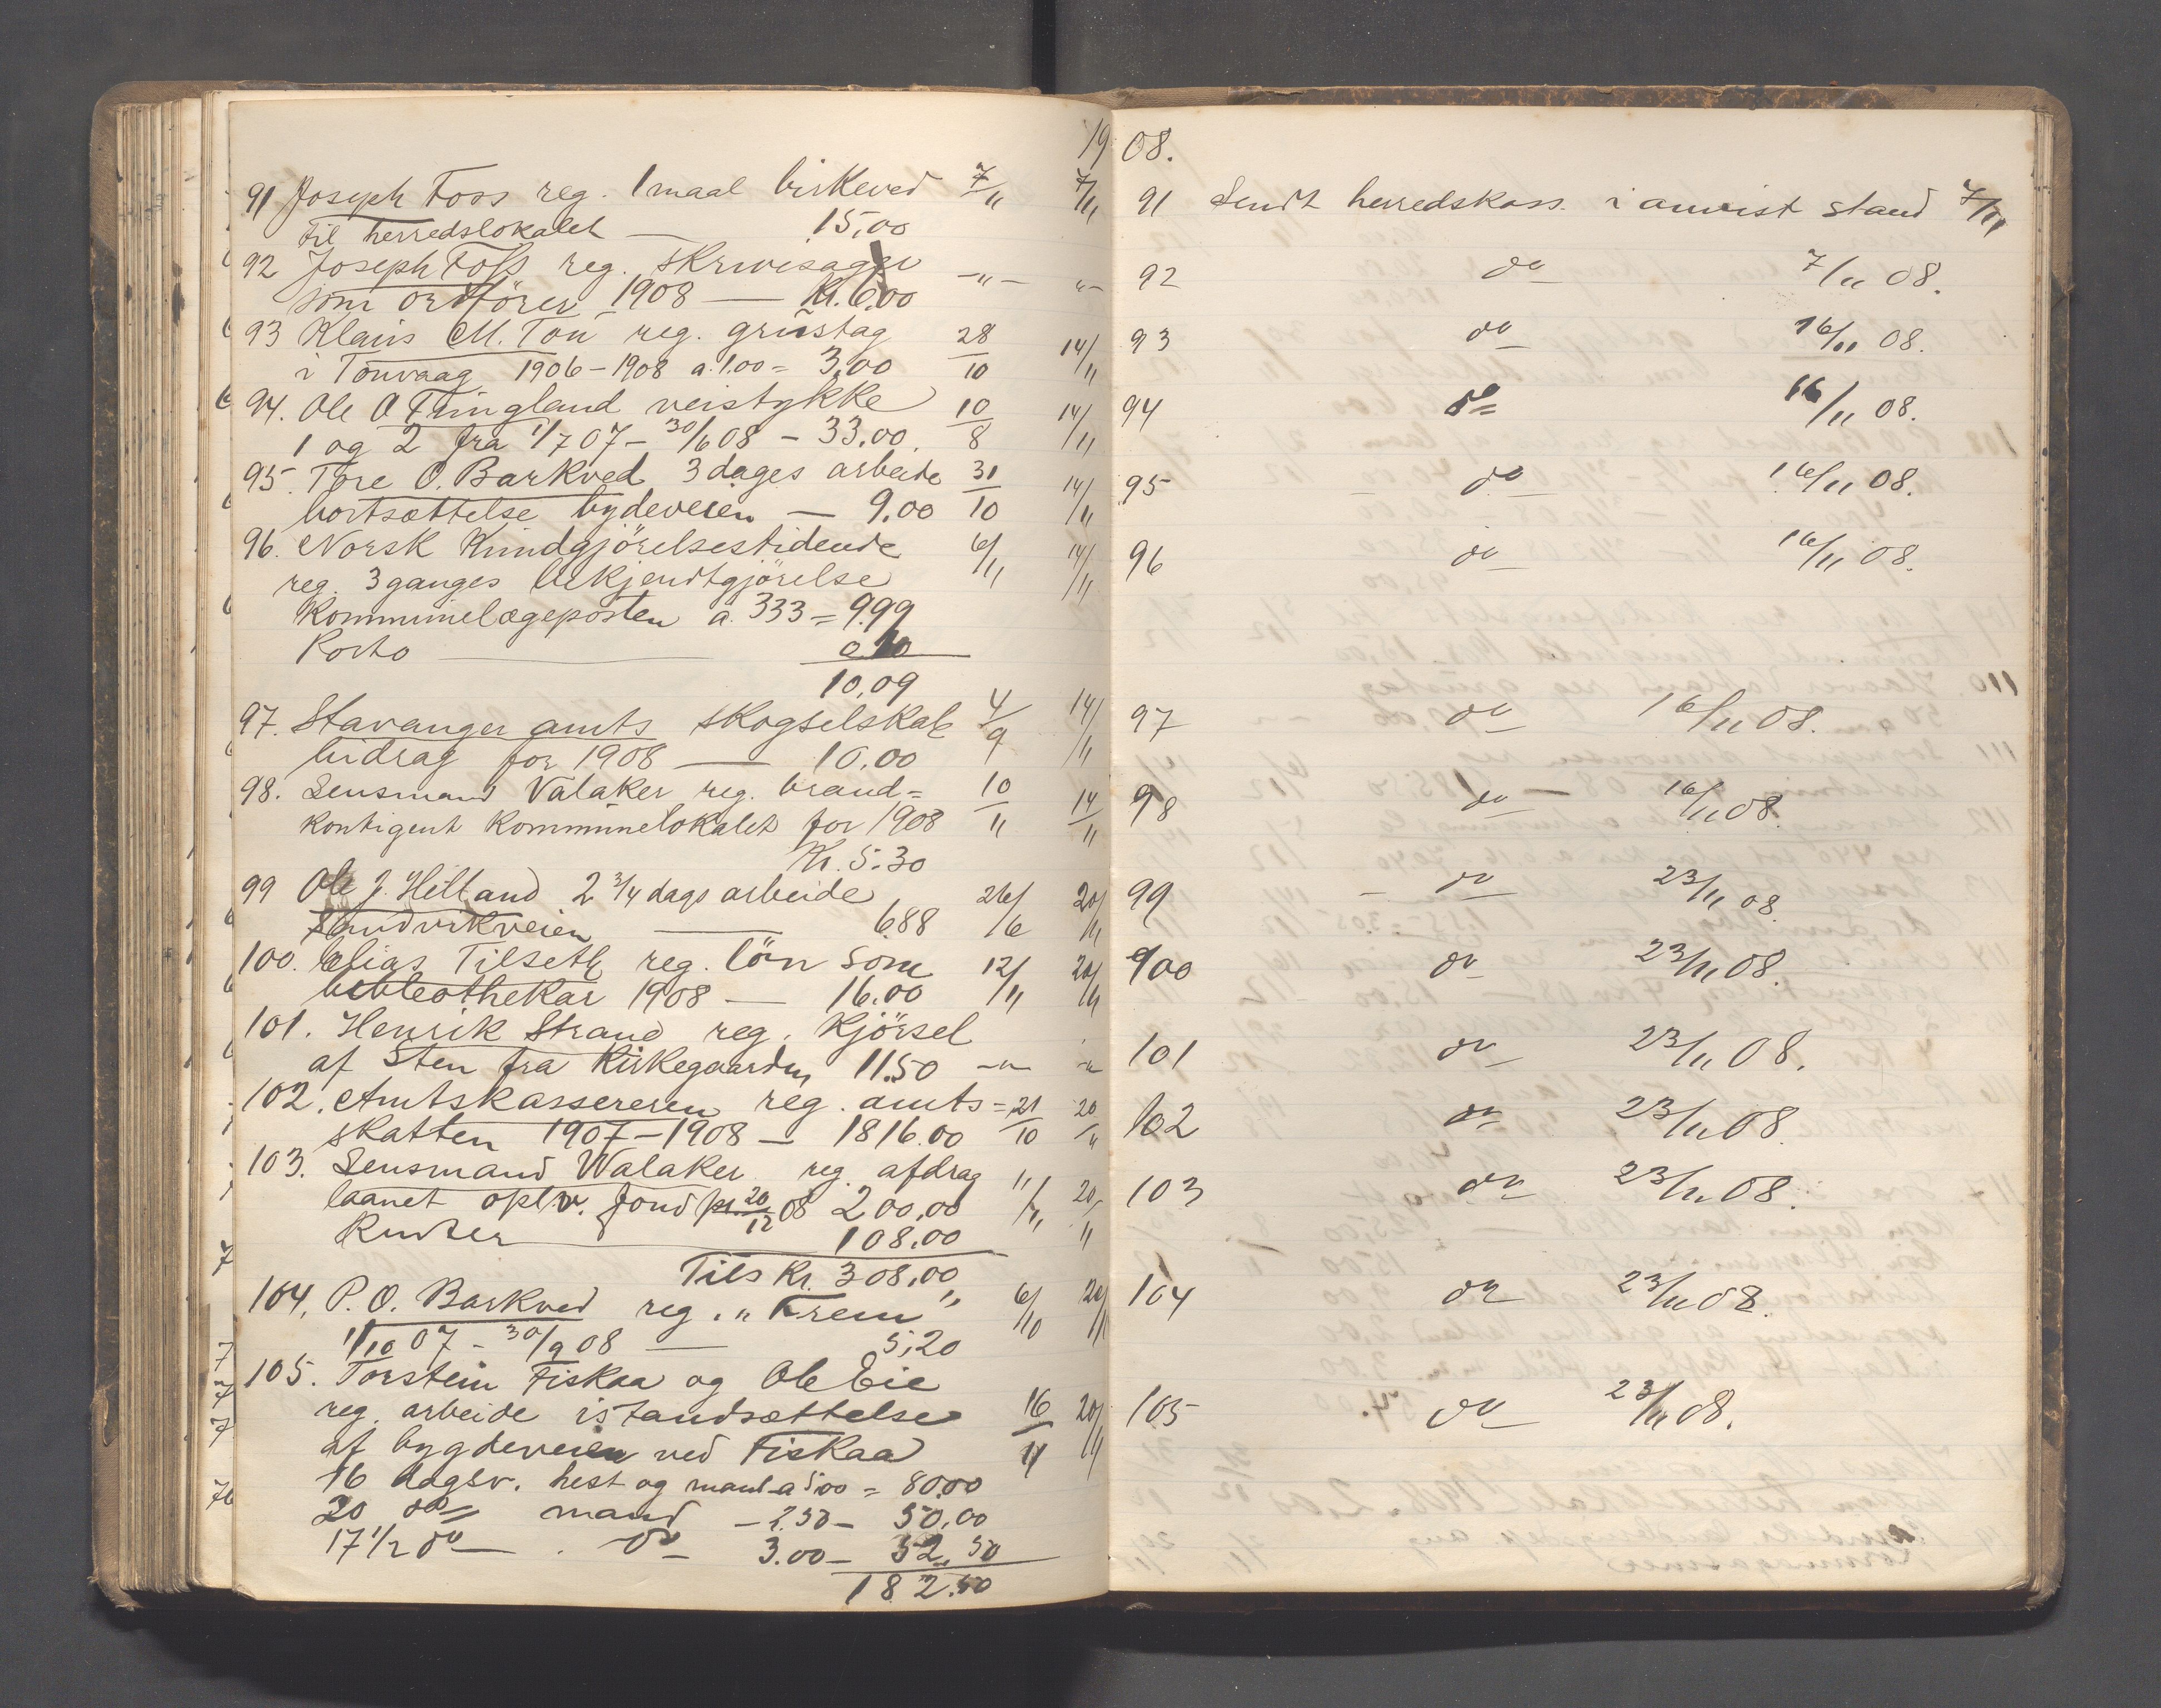 1908.
91 Joseph Foss reg. 1 maal birkeved 7/11 7/11
til herredslokalet — 15,00
92 Joseph Foss reg. skrivesager —"— "—
som ordförer 1908 — Kr. 6.00
93 Klaus M. Ton reg. grustag 28/10 14/11
i Tonvaag 1906-1908 a 1.00 = 3,00
94. Ole O Tringland veistykke 10/8 14/11
1 og 2 fra 1/7 07 - 30/6 08 - 33.00
95. Tore O. Barkved 3 dages arbeide 31/10 14/11
bortsættelse bydeveien — 9.00
96. Norsk Kundgjörelsestidende 6/11 14/11
reg. 3 ganges bekjendtgjörelse
Kommunelægeposten a. 333 = 9.99
Porto — 0.10
10,09
97. Stavanger amts skogselskab 4/9 14/11
bidrag for 1908 — 10.00
98. Lensmand Valaker reg. brand= 10/11 14/11
kontigent kommunelokalet for 1908
Kr. 5.30
99 Ole J. Hetland 2 3/4 dags arbeide 26/6 20/11
Sandvikveien — 6.88
100. Elias Tilseth reg. lön som 12/11 20/11
bibleothekar 1908 — 16.00
101. Henrik Strand reg. Kjörsel
af Sten fra Kirkegaarden 11.50 —"— —"—
102. Amtskassereren reg. amts= 21/10 20/11
skatten 1907-1908 — 1816.00
103. Lensmand Walaker reg. afdrag 11/11 20/11
laanet oplv. fond pr. 20/12 08 200,00
Renter — 108.00
Tils Kr. 308,00
104. P. O. Barkved reg. "Frem" 6/10 20/11
1/10 07 - 30/9 08 — 5,20
105. Torstein Fiskaa og Ole Eie
reg. arbeide istandsættelse 16/11 20/11
af bygdeveien ved Fiskaa
16 dagsv. hest og mand a 5.00 = 80.00
20 do mand - 2.50 - 50.00
17 1/2 do — do — 3.00 - 52.50
182.50
91 Sendt herredskass. i anvist stand 7/11
92 do 7/11 08.
93 do 16/11 08.
94 do 16/11 08.
95 do 16/11 08.
96 do 16/11 08.
97 do 16/11 08.
98 do 16/11 08.
99 do 23/11 08.
100 do 23/11 08.
101 do 23/11 08.
102 do 23/11 08.
103 do 23/11 08.
104 do 23/11 08.
105 do 23/11 08.